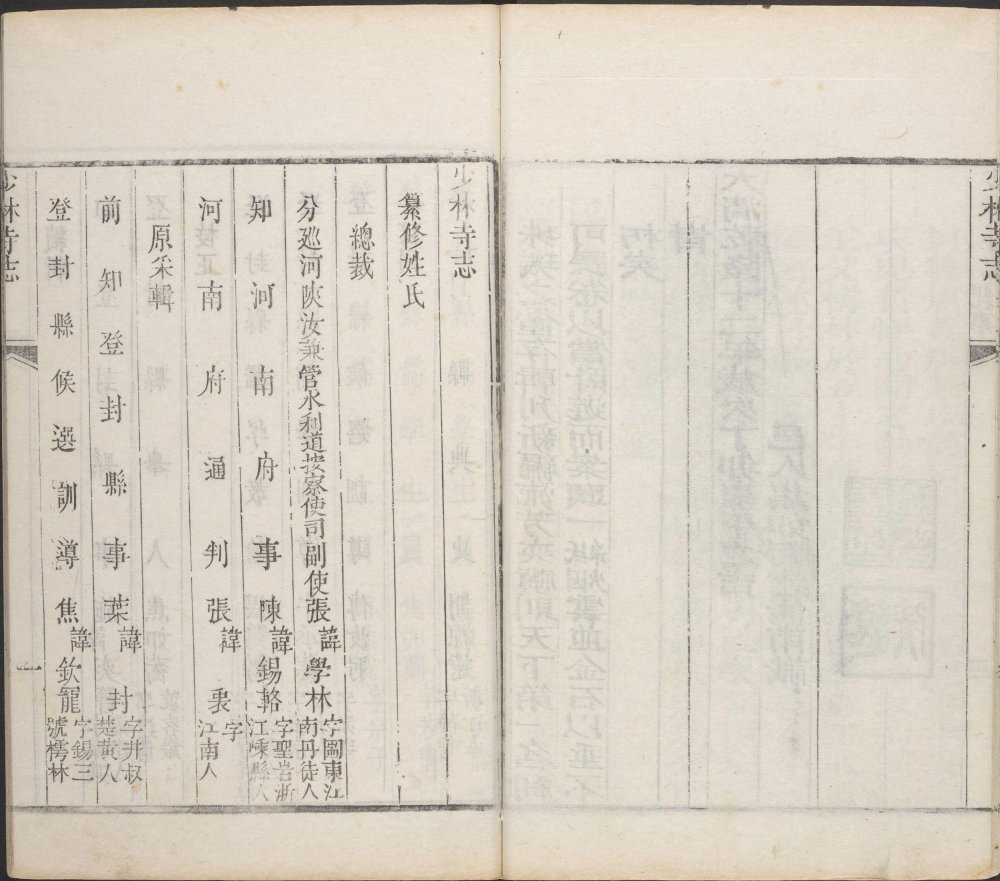 少林寺志
少林寺志
纂修姓氏
總裁
分巡河陝汝兼管水利道按察使司副使張諱學林字圖東江南丹徒人
知河南府事陳諱錫輅字聖岩浙江嵊縣人
河南府通判張諱㐮字江南人
原采輯
前知登封縣事葉諱封字井叔楚黃人
登封縣候選訓導焦諱欽寵字錫三號樗林
少林寺志
一